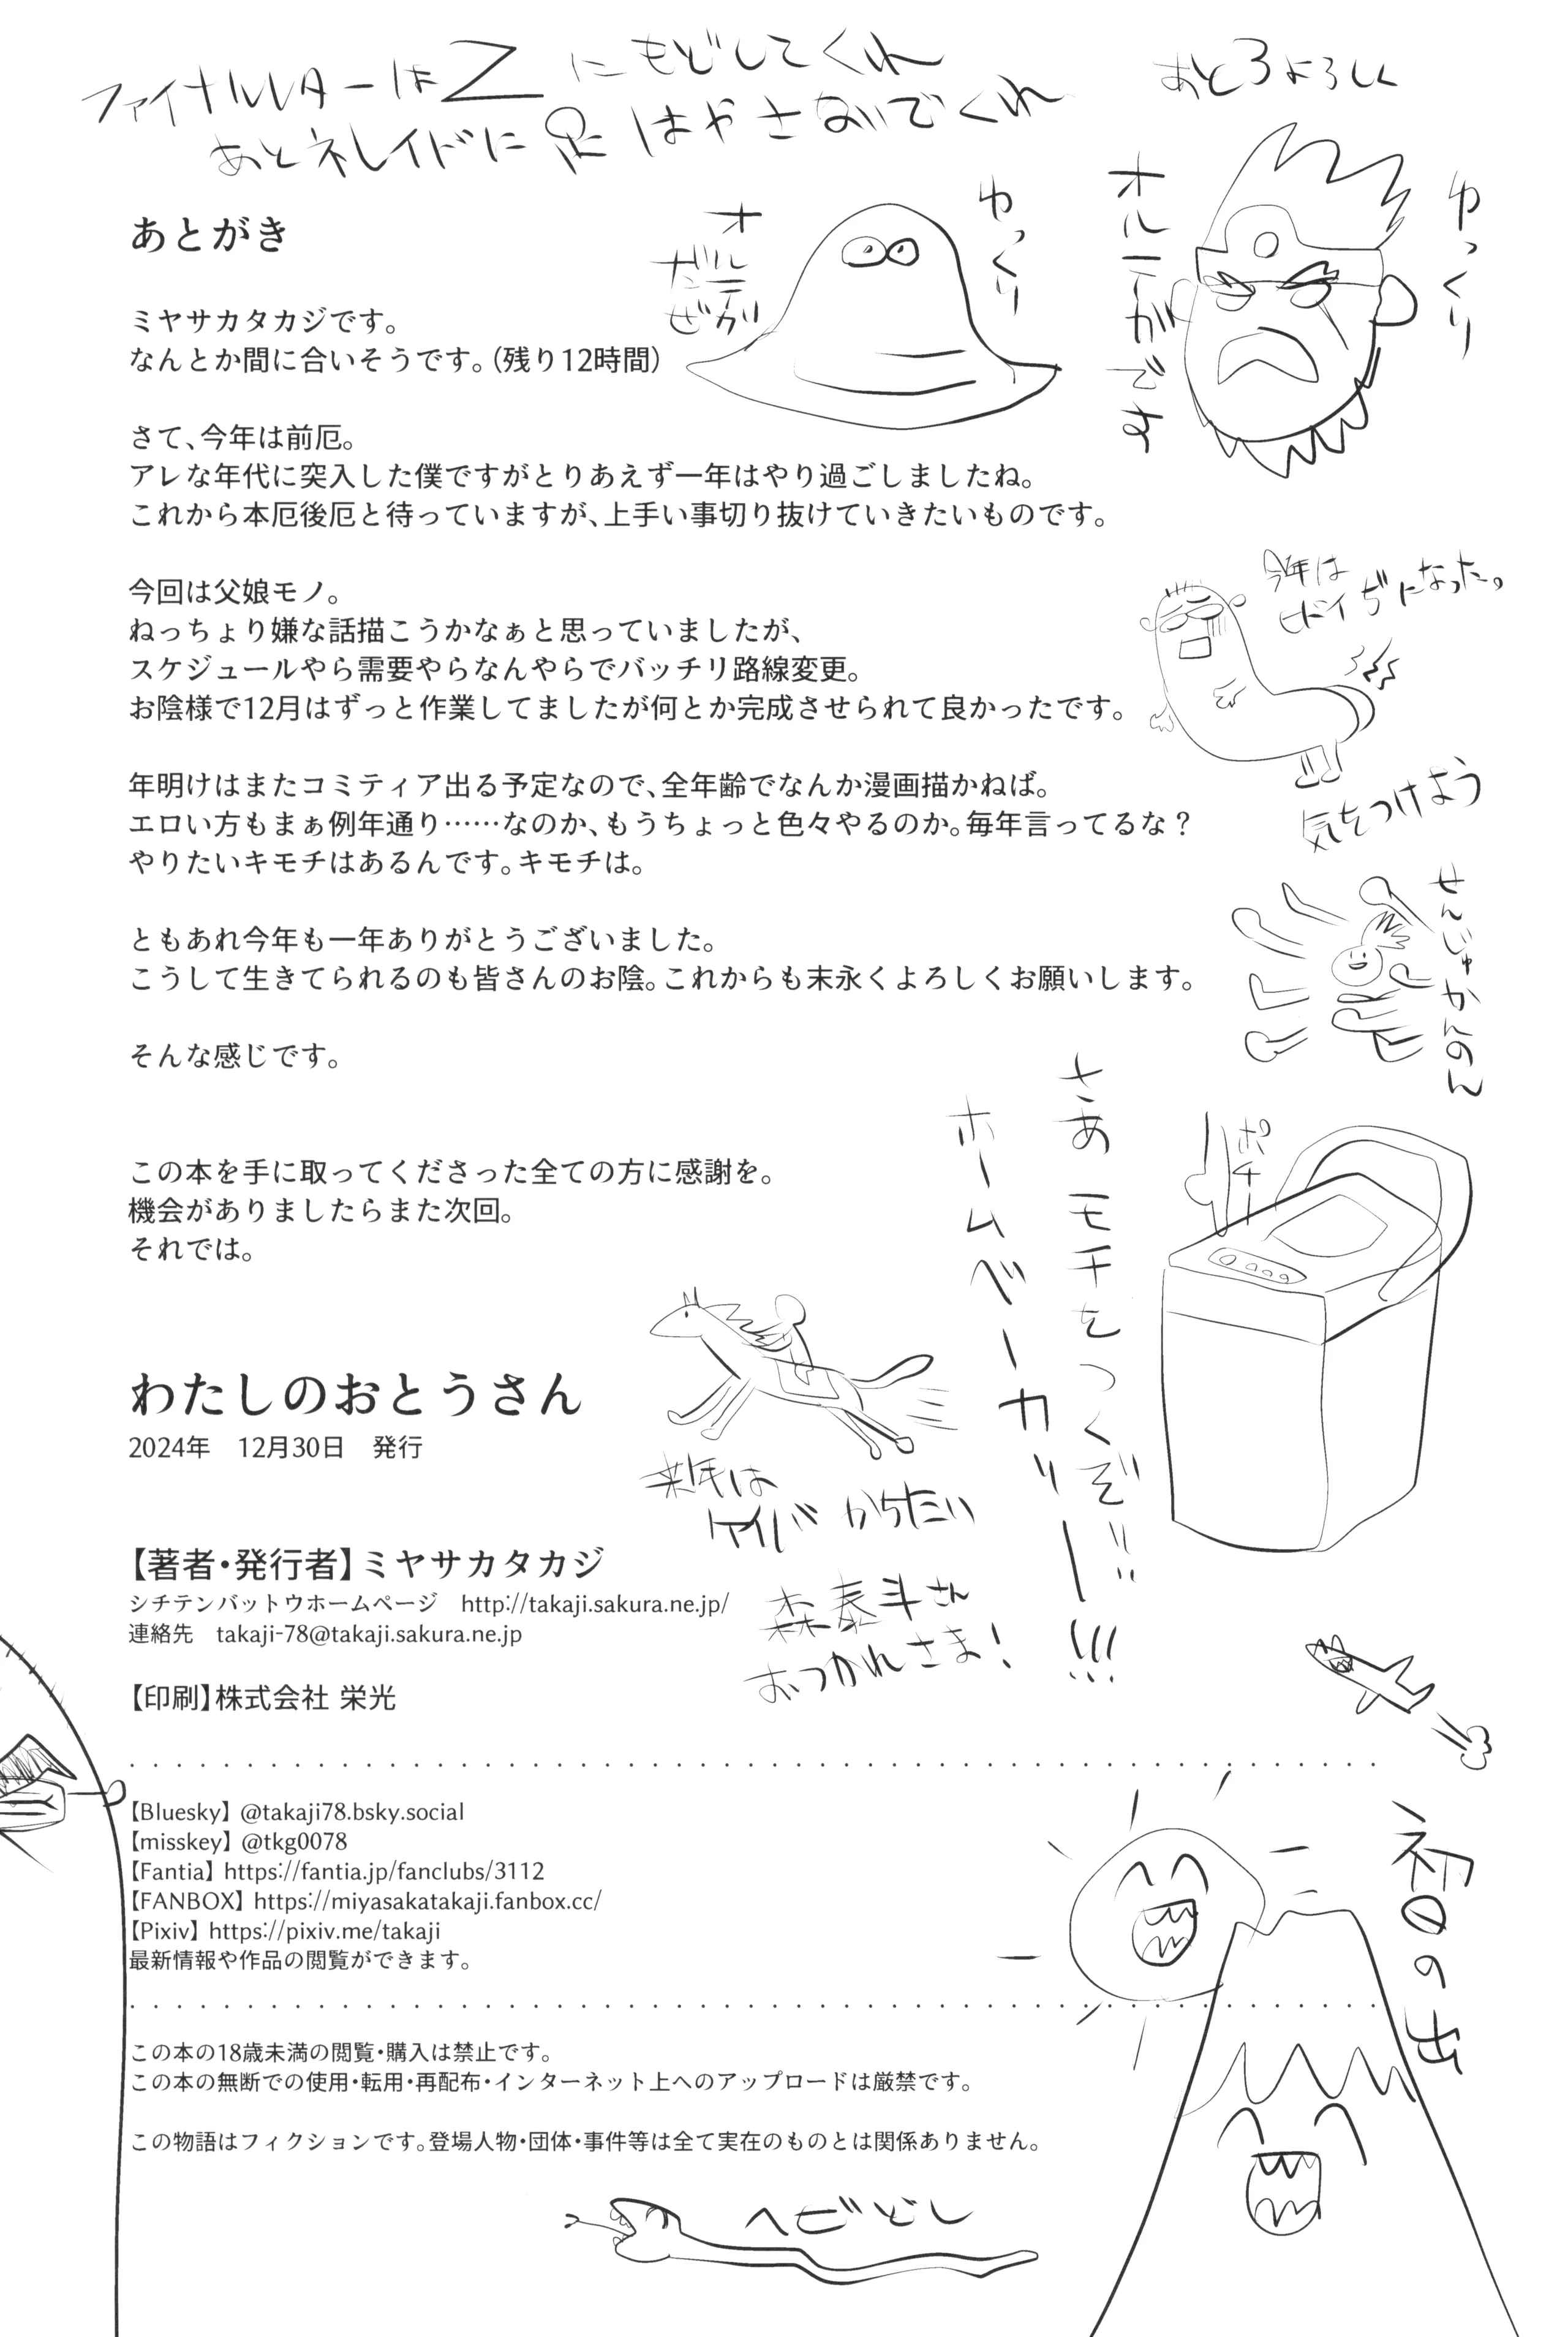 ファイナルレターはZにもどしてくれ
あとネレイドに足はやさないでくれ
あと3よろしく
あとがき
ゆっくり
オルテガ
だぜ
ゆっくり
オルテガです
ミヤサカタカジです。
なんとか間に合いそうです。（残り12時間）
さて、今年は前厄。
アレな年代に突入した僕ですがとりあえず一年はやり過ごしましたね。
これから本厄後厄と待っていますが、上手い事切り抜けていきたいものです。
今年は
ヒドイぢになった。
気をつけよう
今回は父娘モノ。
ねっちょり嫌な話描こうかなぁと思っていましたが、
スケジュールやら需要やらなんやらでバッチリ路線変更。
お陰様で12月はずっと作業してましたが何とか完成させられて良かったです。
年明けはまたコミティア出る予定なので、全年齢でなんか漫画描かねば。
エロい方もまぁ例年通り……なのか、もうちょっと色々やるのか。毎年言ってるな？
やりたいキモチはあるんです。キモチは。
せんじゅかんのん
ともあれ今年も一年ありがとうございました。
こうして生きてられるのも皆さんのお陰。これからも末永くよろしくお願いします。
そんな感じです。
さあ モチをつくぞ!!
ホームベーカリー!!!
ポチー
この本を手に取ってくださった全ての方に感謝を。
機会がありましたらまた次回。
それでは。
わたしのおとうさん
2024年　12月30日　発行
来年は
ケイバ かちたい
森泰斗さん
おつかれさま！
【著者・発行者】ミヤサカタカジ
シチテンバットウホームページ　http://takaji.sakura.ne.jp/
連絡先　takaji-78@takaji.sakura.ne.jp
【印刷】株式会社 栄光
【Bluesky】@takaji78.bsky.social
【misskey】@tkg0078
【Fantia】https://fantia.jp/fanclubs/3112
【FANBOX】https://miyasakatakaji.fanbox.cc/
【Pixiv】https://pixiv.me/takaji
最新情報や作品の閲覧ができます。
初日の出
この本の18歳未満の閲覧・購入は禁止です。
この本の無断での使用・転用・再配布・インターネット上へのアップロードは厳禁です。
この物語はフィクションです。登場人物・団体・事件等は全て実在のものとは関係ありません。
ヘビどし